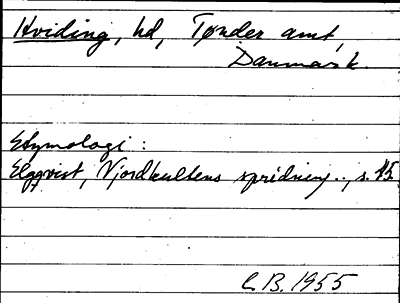 Hviding, hd, Tønder amt,
Danmark.
Etymologi:
Elgqvist, Njordkultens spridning.., s. 15.
C.B. 1955